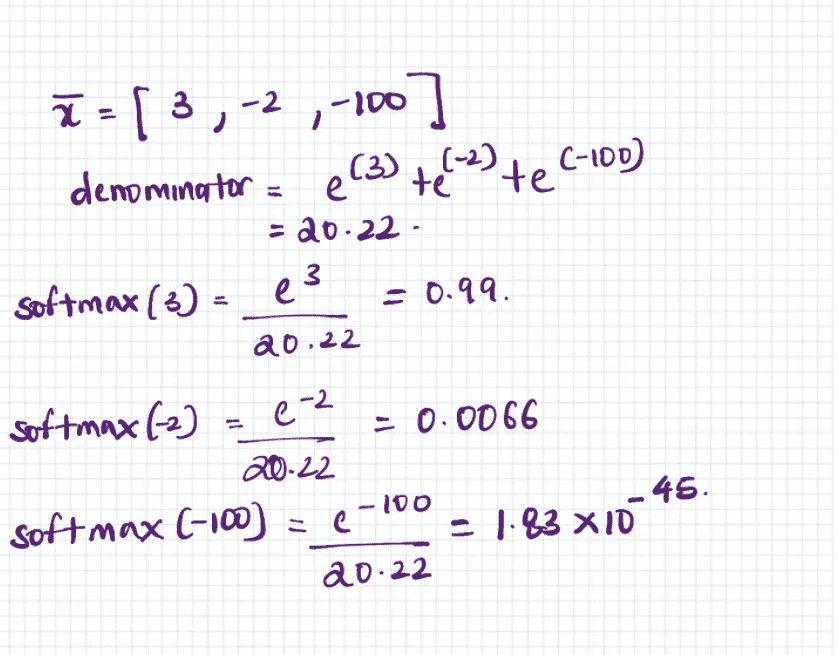 x̄ = [ 3 , -2 , -100 ]
denominator = e^(3) + e^(-2) + e^(-100)
= 20.22.
softmax(3) = e^3 / 20.22 = 0.99.
softmax(-2) = e^-2 / 20.22 = 0.0066
softmax(-100) = e^-100 / 20.22 = 1.83 × 10^-45.